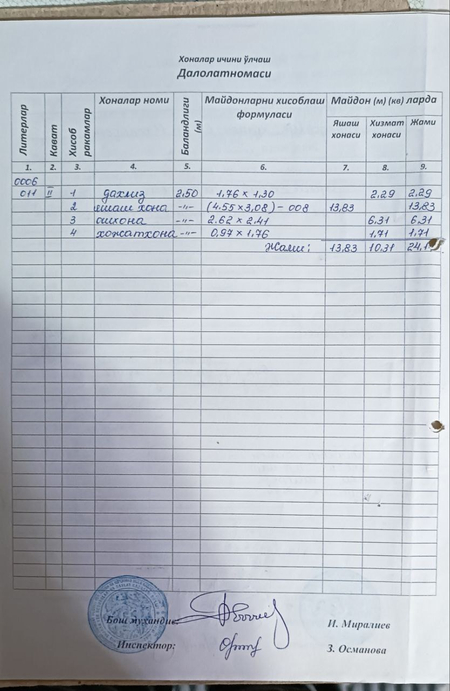 Хоналар ичини ўлчаш
Далолатномаси
Литерлар Кават Хисоб ракамлар Хоналар номи Баландлиги (м) Майдонларни хисоблаш формуласи Майдон (м) (кв) ларда
Яшаш хонаси Хизмат хонаси Жами
1. 2. 3. 4. 5. 6. 7. 8. 9.
0006
011 II 1 дахлиз 2,50 1,76 × 1,30 2.29 2.29
2 яшаш хона -"- (4.55×3,08) - 008 13,83 13.83
3 ошхона -"- 2.62 × 2,41 6.31 6,31
4 хожатхона -"- 0,97 × 1,76 1,71 1,71
Жами: 13,83 10.31 24,1
Бош мухандис: И. Миралиев
Инспектор: З. Османова